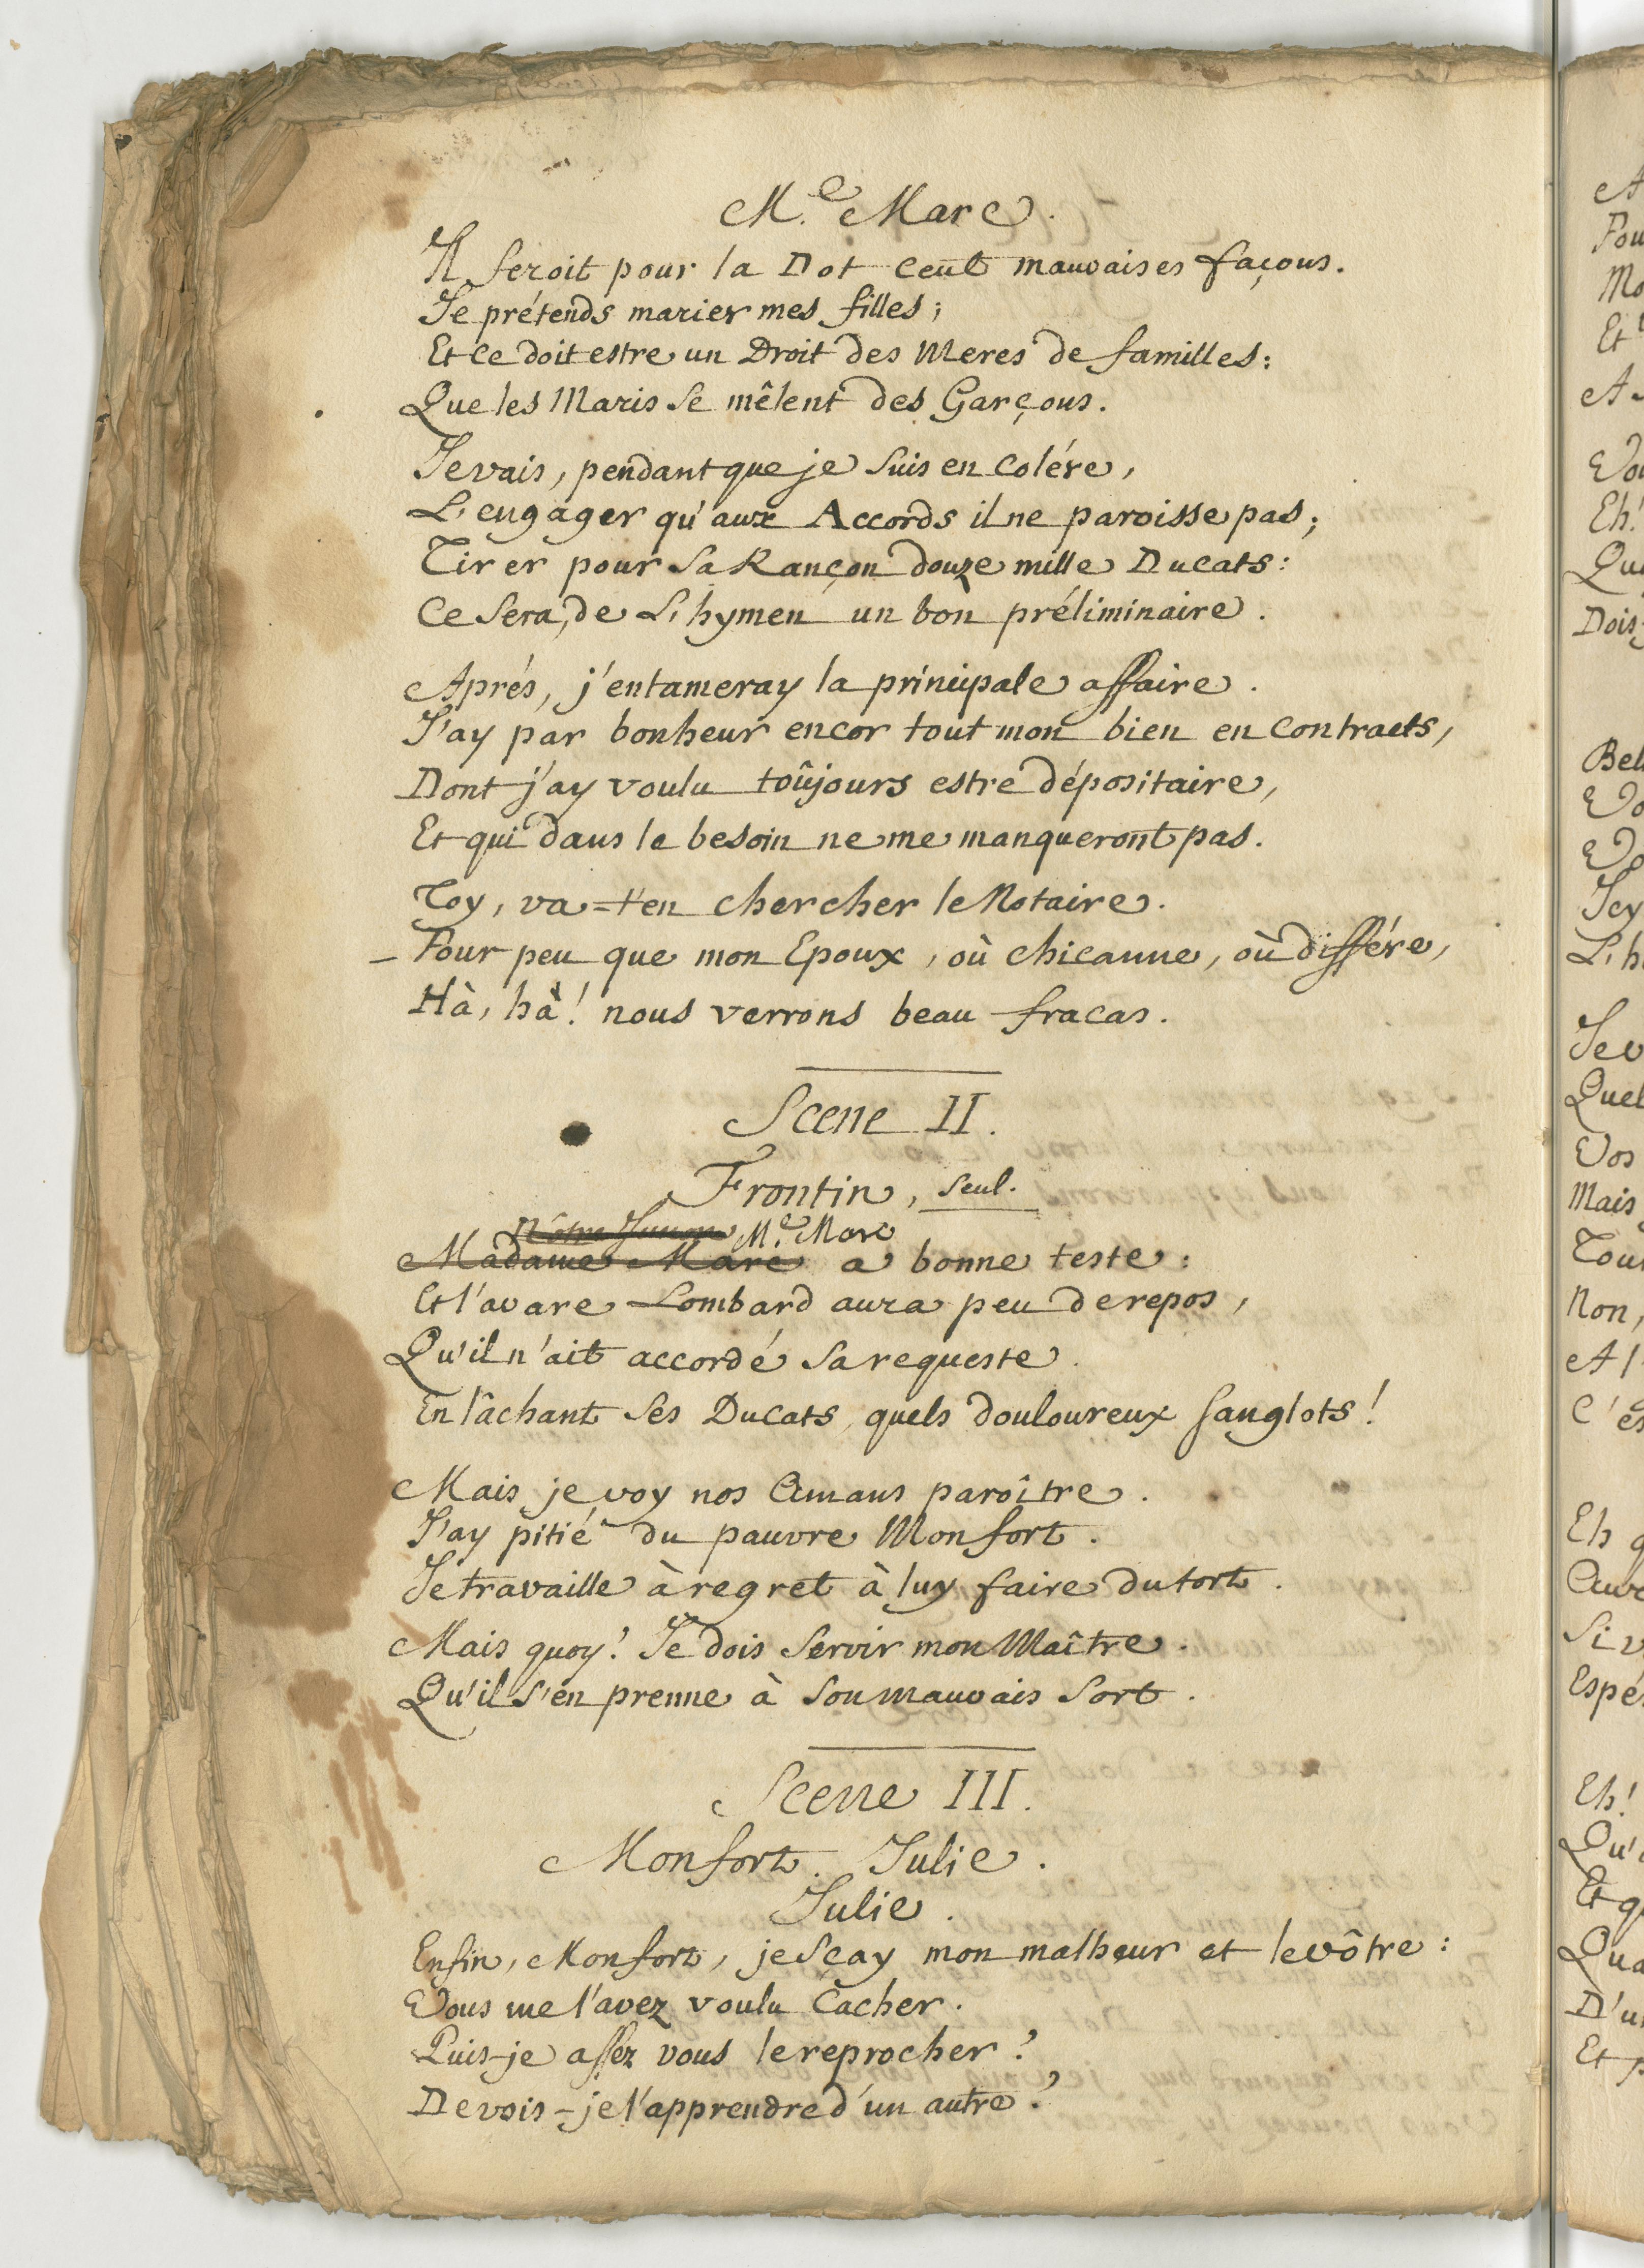 M.e Marc.
Il feroit pour la Dot cent mauvaises façons.
Je prétends marier mes filles;
Et ce doit estre un Droit des Meres de familles:
Que les Maris se mêlent des Garçons.
Je vais, pendant que je suis en colére,
L'engager qu'aux Accords il ne paroisse pas;
Tirer pour sa Rançon douze mille Ducats:
Ce sera, de L'hymen un bon préliminaire.
Aprés, j'entameray la principale affaire.
J'ay par bonheur encor tout mon bien en contracts,
Dont j'ay voulu toûjours estre dépositaire,
Et qui dans le besoin ne me manqueront pas.
Toy, va-t'en chercher le Notaire.
– Pour peu que mon Epoux, où chicanne, où différe,
Hà, hà! nous verrons beau fracas.
Scene II.
Frontin, seul.
Nôtre Junon M.e Marc
Madame Marc a bonne teste:
Et l'avare Lombard aura peu de repos,
Qu'il n'ait accordé sa requeste.
En lâchant ses Ducats, quels douloureux sanglots!
Mais je voy nos Amans paroître.
J'ay pitié du pauvre Monfort.
Je travaille à regret à luy faire du tort.
Mais quoy! Je dois servir mon Maître.
Qu'il s'en prenne à son mauvais sort.
Scene III.
Monfort. Julie.
Julie.
Enfin, Monfort, je sçay mon malheur et le vôtre:
Vous me l'avez voulu cacher.
Puis-je assez vous le reprocher?
Devois-je l'apprendre d'un autre?